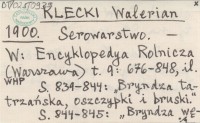 KLECKI Walerian
1900. Serowarstwo. –
W: Encyklopedya Rolnicza
(Warszawa) t. 9: 676-848, il.
WHP S. 834-844: „Bryndza ta-
trzańska, oszczypki i bruski."
S. 844-845: „Bryndza WĘ-